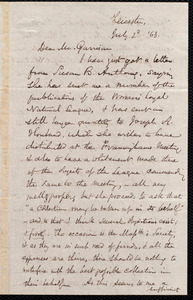 Leicester,
July 2d '63.
Dear Mr. Garrison
I have just got a letter
from Susan B. Anthony, saying
she has sent me a number of the
publications of the Women's Loyal
National League, & has sent in
still larger quantity to Joseph A.
Howland, which she wishes to have
distributed at the Framingham Meeting
& also to have a statement made there
of the objects of the League concerning
the same to the meeting, – all very
well & proper; but she proceeds to ask that
"a Collection may be taken up in its behalf"
and that I think several objections exist,
& first, the occasion is the Mass. A. S. Society's,
& as they are in such need of funds, & all the
expenses are theirs, there should be nothing to
interfere with the best possible collection in
their behalf. As this